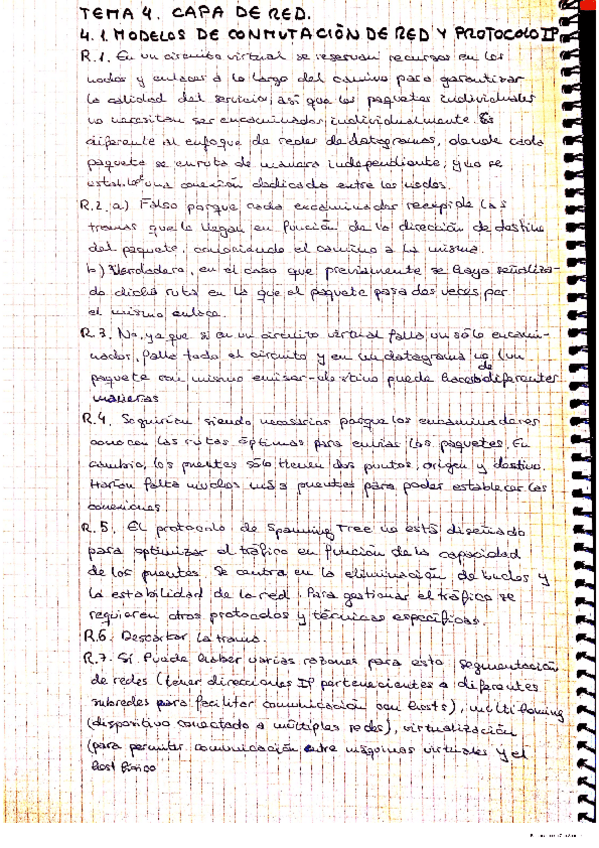 TEMA 4. CAPA DE RED.
4.1. MODELOS DE CONMUTACIÓN DE RED Y PROTOCOLO IP
R.1. En un circuito virtual se reservan recursos en los
nodos y enlaces a lo largo del camino para garantizar
la calidad del servicio, así que los paquetes individuales
no necesitan ser encaminados individualmente. Es
diferente al enfoque de redes de datagramas, donde cada
paquete se enruta de manera independiente, y no se
establece una conexión dedicada entre los nodos.
R.2. a) Falso porque cada encaminador las
tramas que le llegan en función de la dirección de destino
del paquete, conociendo el camino a la misma.
b) Verdadera, en el caso que previamente se haya señaliza-
do dicha ruta en la que el paquete pasa dos veces por
el mismo enlace.
R.3. No, ya que si en un circuito virtual falla un sólo encami-
nador, falla todo el circuito y en un datagrama no (un
paquete con mismo emisor-destino puede de diferentes
maneras
R.4. Seguirían siendo necesarios porque los encaminadores
conocen las rutas óptimas para enviar los paquetes. En
cambio, los puentes sólo tienen dos puntos, origen y destino.
Harían falta niveles más puentes para poder establecer las
conexiones
R.5. El protocolo de Spanning Tree no está diseñado
para optimizar el tráfico en función de la capacidad
de los puentes. Se centra en la eliminación de bucles y
la estabilidad de la red. Para gestionar el tráfico se
requieren otros protocolos y técnicas específicas.
R.6. Descartar la trama.
R.7. Sí. Puede haber varias razones para esto segmentación
de redes (tener direcciones IP pertenecientes a diferentes
subredes para facilitar comunicación con hosts), multihoming
(dispositivo conectado a múltiples redes), virtualización
(para permitir comunicación entre máquinas virtuales y el
host físico